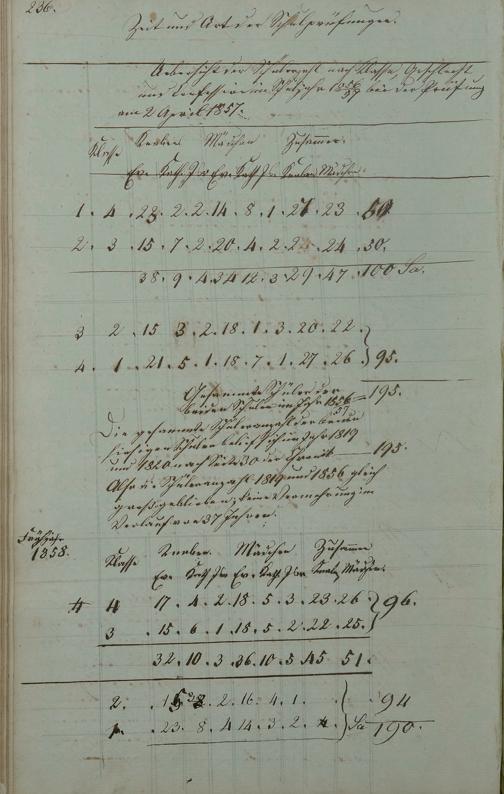 236.
Zeit und Art der Schulprüfungen.
Uebersicht der Schülerzahl nach Klasse, Geschlecht
und Confession im Schuljahr 1856/57 bei der Prüfung
am 2 April 1857.
Klasse Knaben Mädchen Zusammen.
Ev. Kath. Isr. Ev. Kath. Isr. Knaben Mädchen.
1. 4. 23. 2. 2. 14. 8. 1. 27. 23. 50.
2. 3. 15. 7. 2. 20. 4. 2. 24. 50.
38. 9. 4. 34 12. 3 29. 47. 100 Sa.
3 2. 15 3. 2. 18. 1. 3. 20. 22.
4. 1. 21. 5. 1. 18. 7. 1. 27. 26. 95.
Gesammte Schüler der
beiden Schulen im Jahr 1856/57 = 195.
Die gesammte Schüleranzahl der beiden
hiesigen Schulen belief sich im Jahr 1819
und 1820 nach Seite 30 der Chronik — 195.
Also die Schüleranzahl 1819 und 1856 gleich
groß geblieben; keine Vermehrung im
Verlauf von 37 Jahren.
Frühjahr
1858.
Klasse Knaben. Mädchen Zusammen
Ev. Kath. Isr. Ev. Kath. Isr. Knaben Mädchen.
4 17. 4. 2. 18. 5. 3. 23. 26. 96.
3 15. 6. 1. 18. 5. 2. 22. 25.
32. 10. 3. 36. 10. 5 45 51.
2. 2. 16. 4. 1. 94
1. 23. 8. 4 14. 3. 2. 4. Sa 190.